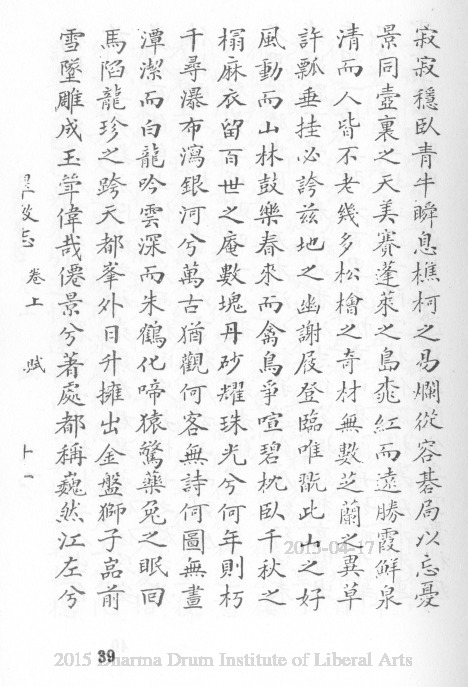 寂寂穩臥青牛瞬息樵柯之易爛從容碁局以忘憂
景同壺裏之天美賽蓬萊之島桃紅而遠勝霞鮮泉
清而人皆不老幾多松檜之奇材無數芝蘭之異草
許瓢垂挂必誇茲地之幽謝屐登臨唯翫此山之好
風動而山林鼓樂春來而禽鳥爭喧碧枕臥千秋之
榻麻衣留百世之庵數塊丹砂耀珠光兮何年則朽
千尋瀑布瀉銀河兮萬古猶觀何客無詩何圖無畫
潭潔而白龍吟雲深而朱鶴化啼猿驚藥兔之眠回
馬陷龍珍之跨天都峯外日升擁出金盤獅子嵓前
雪墜雕成玉筍偉哉僊景兮著處都稱巍然江左兮
卷上 賦 十一
39
2015-04-17
2015 Dharma Drum Institute of Liberal Arts